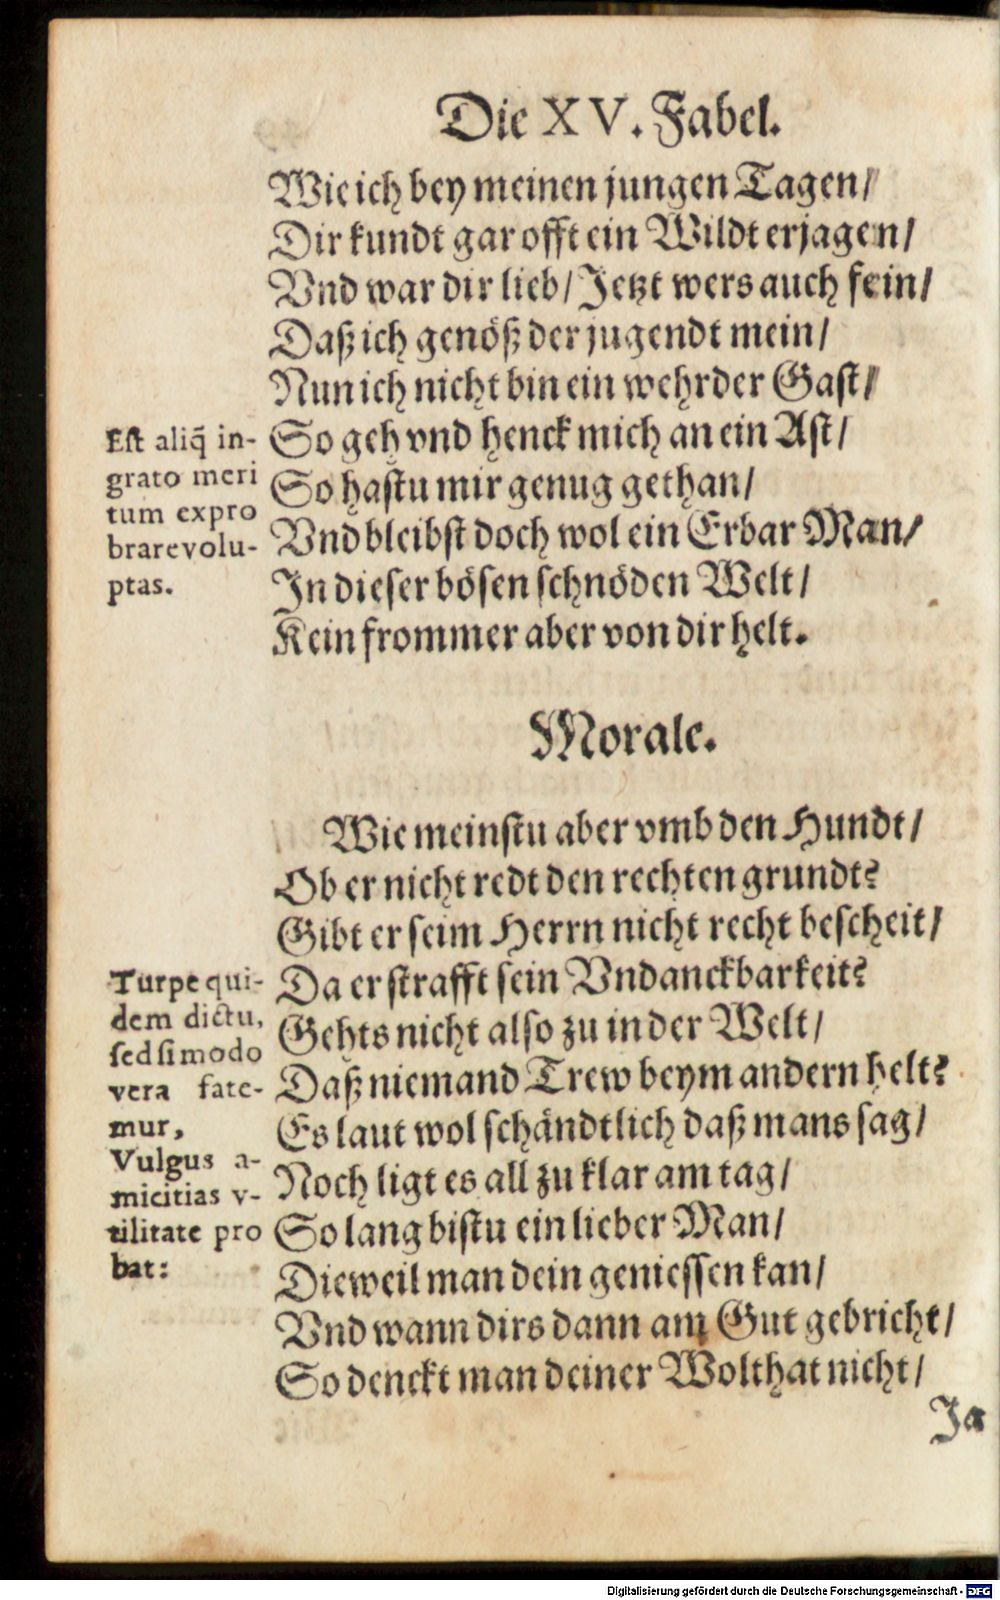 Die XV. Fabel.
Wie ich bey meinen jungen Tagen/
Dir kundt gar offt ein Wildt erjagen/
Vnd war dir lieb/ Jetzt wers auch fein/
Daß ich genöß der jugendt mein/
Nun ich nicht bin ein wehrder Gast/
So geh vnd henck mich an ein Ast/
So hastu mir genug gethan/
Vnd bleibst doch wol ein Erbar Man/
In dieser bösen schnöden Welt/
Kein frommer aber von dir helt.
Est aliq̃ in-
grato meri
tum expro
brare volu-
ptas.
Morale.
Wie meinstu aber vmb den Hundt/
Ob er nicht redt den rechten grundt?
Gibt er seim Herrn nicht recht bescheit/
Da er strafft sein Vndanckbarkeit?
Gehts nicht also zu in der Welt/
Daß niemand Trew beym andern helt?
Es laut wol schändtlich daß mans sag/
Noch ligt es all zu klar am tag/
So lang bistu ein lieber Man/
Dieweil man dein geniessen kan/
Vnd wann dirs dann am Gut gebricht/
So denckt man deiner Wolthat nicht/
Turpe qui-
dem dictu,
sed si modo
vera fate-
mur,
Vulgus a-
micitias v-
tilitate pro
bat:
Ja
Digitalisierung gefördert durch die Deutsche Forschungsgemeinschaft - DFG